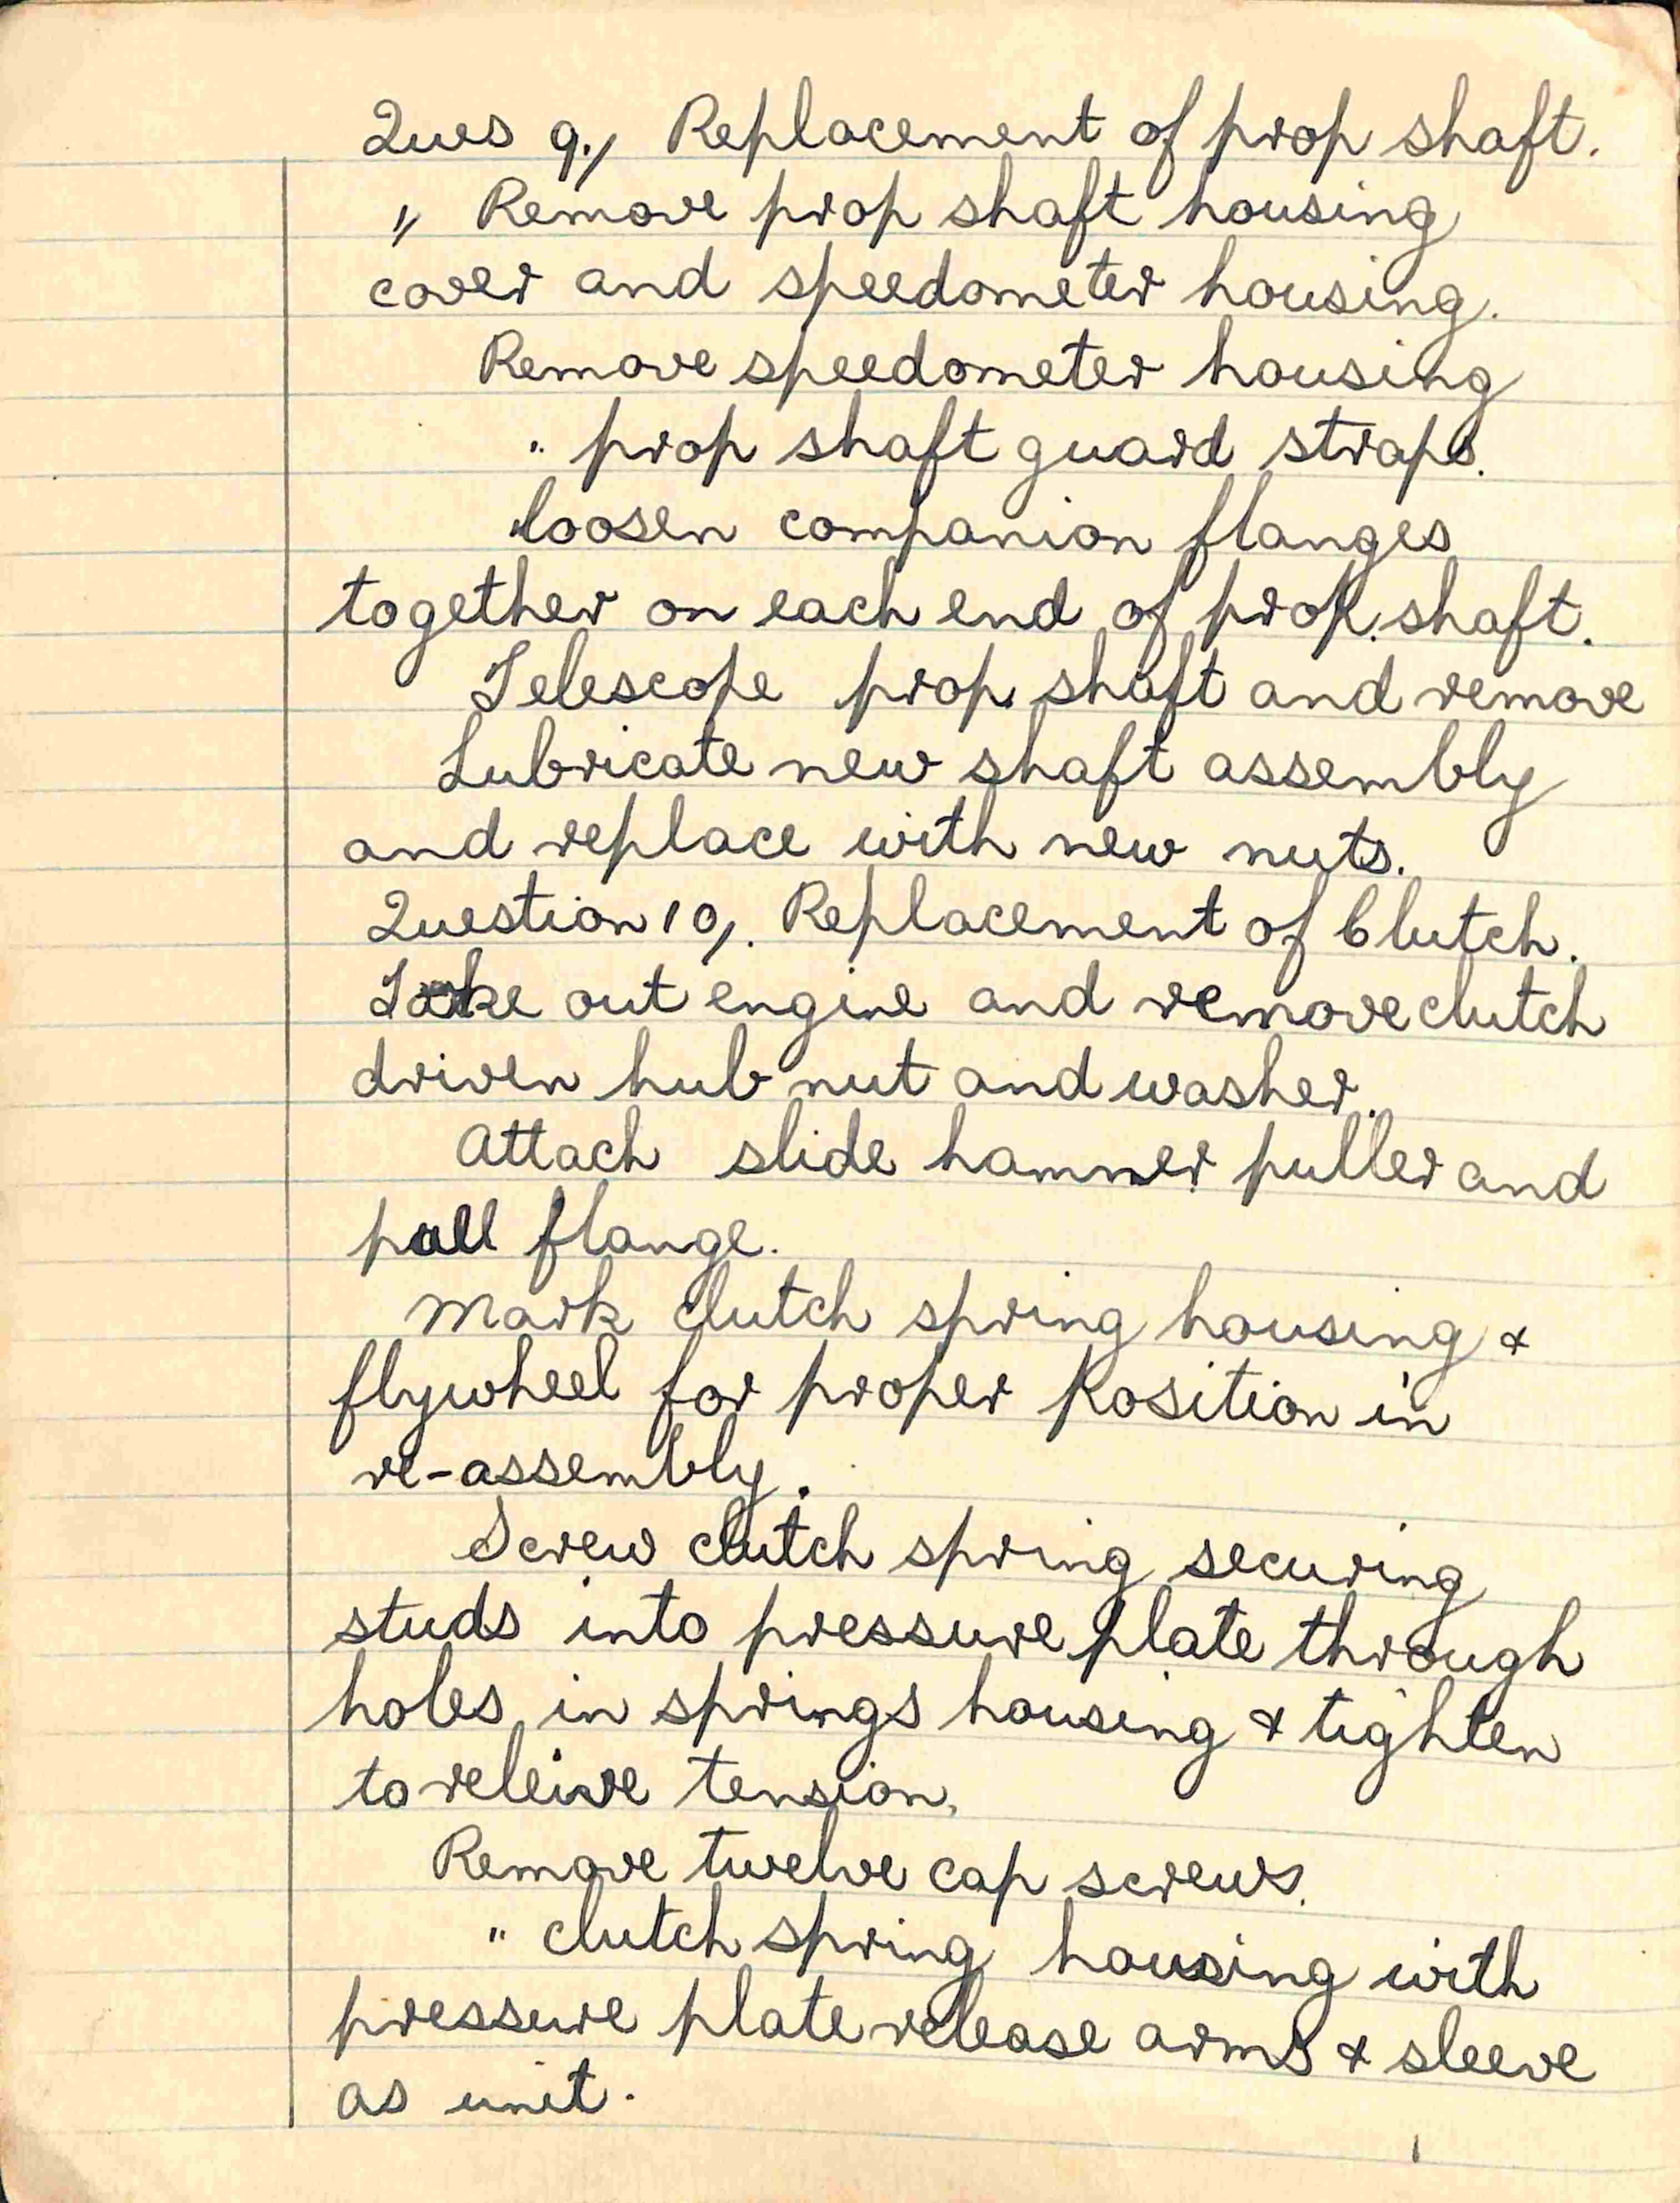 Ques 9., Replacement of prop shaft.
" Remove prop shaft housing
cover and speedometer housing.
Remove speedometer housing
" prop shaft guard straps.
loosen companion flanges
together on each end of prop. shaft.
Telescope prop. shaft and remove
Lubricate new shaft assembly
and replace with new nuts.
Question 10,. Replacement of Clutch.
Take out engine and remove clutch
driven hub nut and washer.
Attach slide hammer puller and
pull flange.
Mark clutch spring housing &
flywheel for proper position in
re-assembly.
Screw clutch spring securing
studs into pressure plate through
holes in springs housing & tighten
to releive tension.
Remove twelve cap screws.
" clutch spring housing with
pressure plate release arms & sleeve
as unit.